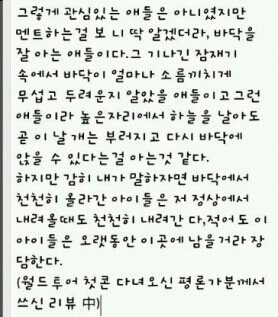 그렇게 관심있는 애들은 아니였지만
멘트하는걸 보 니 딱 알겠더라, 바닥을
잘 아는 애들이다.그 기나긴 잠재기
속에서 바닥이 얼마나 소름끼치게
무섭고 두려운지 알았을 애들이고 그런
애들이라 높은자리에서 하늘을 날아도
곧 이 날 개는 부러지고 다시 바닥에
앉을 수 있다는걸 아는것 같다.
하지만 감히 내가 말하자면 바닥에서
천천히 올라간 아이들은 저 정상에서
내려올때도 천천히 내려간 다,적어 도 이
아이들은 오랫동안 이곳에 남을거라 장
담한다.
(월드 투어 첫콘 다녀오신 평론가분께서
쓰신 리뷰 中)